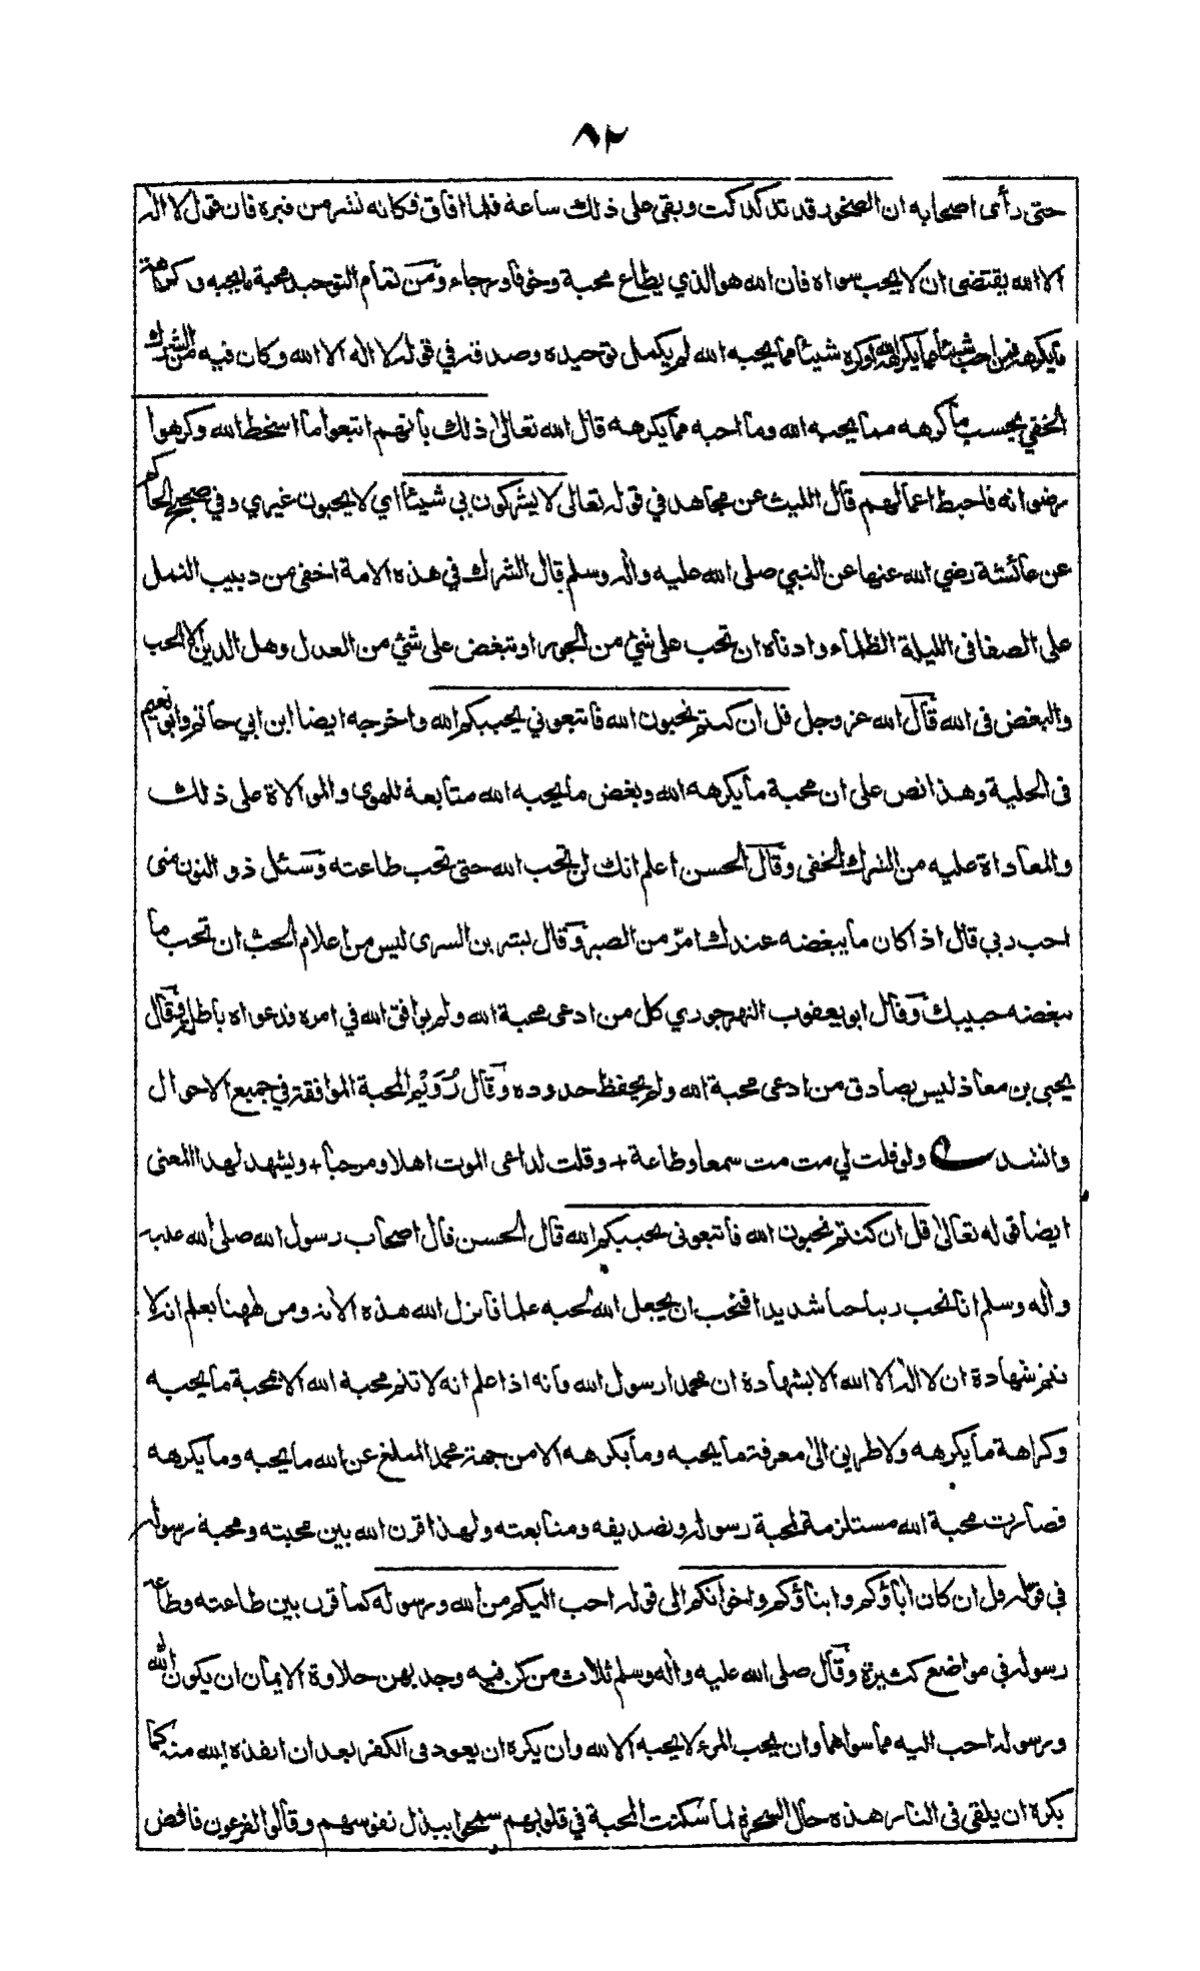 ٨٢
حتى رأى اصحابه ان الصخور قد تدكدكت وبقى على ذلك ساعة فلما افاق فكانه نشر من قبره فان قول لا اله
الا الله يقتضى ان لا يحب سواه فان الله هو الذي يطاع محبة وخوفا ورجاء ومن تمام التوحيد محبة ما يحبه وكراهة
ما يكرهه فمن احب شيئا مما يكرهه الله او كره شيئا مما يحبه الله لم يكمل توحيده وصدقه في قوله لا اله الا الله وكان فيه من الشرك
الخفي بحسب ما كرهه مما يحبه الله وما احبه مما يكرهه قال الله تعالى ذلك بانهم اتبعوا ما اسخط الله وكرهوا
رضوانه فاحبط اعمالهم قال الليث عن مجاهد في قوله تعالى لا يشركون بي شيئا اي لا يحبون غيري وفي صحيح الحاكم
عن عائشة رضي الله عنها عن النبي صلى الله عليه واله وسلم قال الشرك في هذه الامة اخفى من دبيب النمل
على الصفا فى الليلة الظلماء وادناه ان تحب على شئ من الجور او تبغض على شئ من العدل وهل الدين الا الحب
والبغض فى الله قال الله عز وجل قل ان كنتم تحبون الله فاتبعوني يحببكم الله واخرجه ايضا ابن ابي حاتم وابو نعيم
فى الحلية وهذا نص على ان محبة ما يكرهه الله وبغض ما يحبه الله متابعة للهوى والموالاة على ذلك
والمعاداة عليه من الشرك الخفى وقال الحسن اعلم انك لن تحب الله حتى تحب طاعته وسئل ذو النون متى
احب ربي قال اذا كان ما يبغضه عندك امرّ من الصبر وقال بشر بن السرى ليس من اعلام الحب ان تحب ما
يبغضه حبيبك وقال ابو يعقوب النهرجوري كل من ادعى محبة الله ولم يوافق الله في امره فدعواه باطلة وقال
يحيى بن معاذ ليس بصادق من ادعى محبة الله ولم يحفظ حدوده وقال رُوَيْم المحبة الموافقة في جميع الاحوال
وانشد ولو قلت لي مت مت سمعا وطاعة + وقلت لداعى الموت اهلا ومرحبا + ويشهد لهذا المعنى
ايضا قوله تعالى قل ان كنتم تحبون الله فاتبعونى يحببكم الله قال الحسن قال اصحاب رسول الله صلى الله عليه
واله وسلم انا نحب ربنا حبا شديدا فنحب ان يجعل الله لحبه علما فانزل الله هذه الاية ومن ههنا يعلم انه لا
تتم شهادة ان لا اله الا الله الا بشهادة ان محمدا رسول الله فانه اذا علم انه لا تتم محبة الله الا بمحبة ما يحبه
وكراهة ما يكرهه ولا طريق الى معرفة ما يحبه وما يكرهه الا من جهة محمد المبلغ عن الله ما يحبه وما يكرهه
فصارت محبة الله مستلزمة لمحبة رسوله وتصديقه ومتابعته ولهذا قرن الله بين محبته ومحبة رسوله
في قوله قل ان كان اٰباؤكم وابناؤكم واخوانكم الى قوله احب اليكم من الله ورسوله كما قرن بين طاعته وطاعة
رسوله في مواضع كثيرة وقال صلى الله عليه واله وسلم ثلاث من كن فيه وجد بهن حلاوة الايمان ان يكون الله
ورسوله احب اليه مما سواهما وان يحب المرء لا يحبه الا لله وان يكره ان يعود فى الكفر بعد ان انقذه الله منه كما
يكره ان يلقى فى النار هذه حال السحرة لما سكنت المحبة في قلوبهم سمحوا ببذل نفوسهم وقالوا لفرعون فاقض